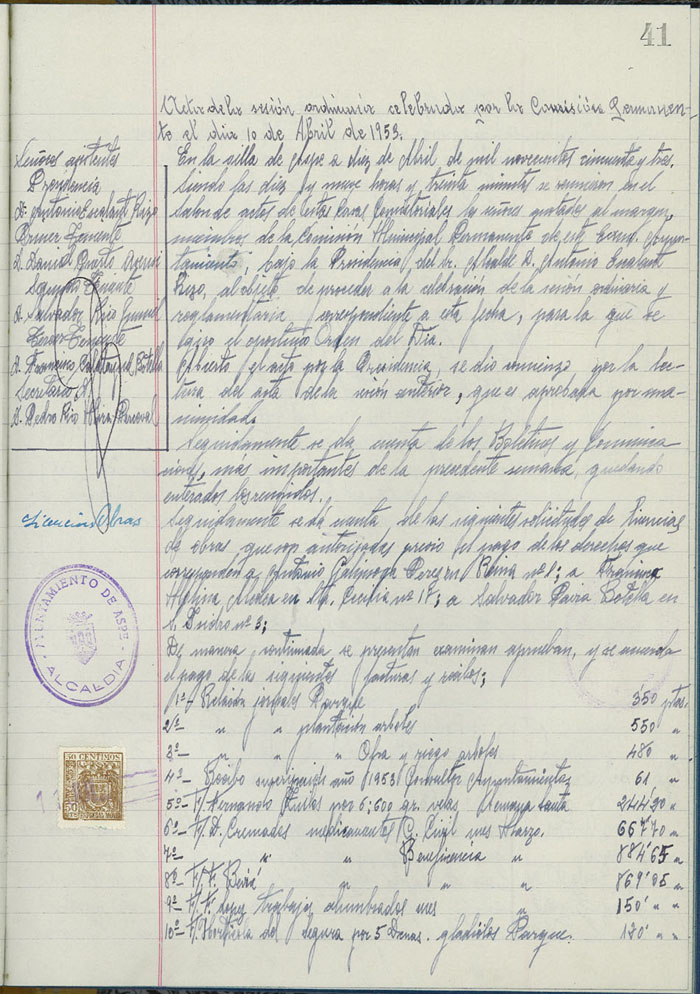 41
Acta de la sesión ordinaria celebrada por la Comisión Permanen-
te el dia 10 de Abril de 1953.
Señores asistentes
Presidencia
D. Antonio Escalant Rizo
Primer Teniente
D.
Segundo Teniente
D. Salvador Rizo
Tercer Teniente
D. Francisco Calatayud Botella
Secretario A.
D. Pedro
En la villa de Aspe a diez de Abril de mil novecientos cincuenta y tres.
Siendo las diez y nueve horas y treinta minutos se reunieron en el
salon de actos de estas Casas Consistoriales los señores anotados al margen,
miembros de la Comisión Municipal Permanente de este Excmo. Ayun-
tamiento, bajo la Presidencia del Sr. Alcalde D. Antonio Escalant
Rizo, al objeto de proceder a la celebración de la sesión ordinaria y
reglamentaria correspondiente a esta fecha, para la que se
el oportuno Orden del Dia.
Abierto el acto por la Presidencia, se dio comienzo, por la lec-
tura del acta de la sesión anterior, que es aprobada por una-
nimidad.
Seguidamente se da cuenta de los Boletines y Comunica
ciones, mas importantes de la precedente semana, quedando
enterados los reunidos.
Licencias Obras
Seguidamente se dá cuenta de las siguientes solicitudes de licencias
de obras que son autorizadas previo el pago de los derechos que
corresponden a Antonio en nº 1; a
en Sta. Cecilia nº 17; a Salvador Botella en
S. Isidro nº 3;
De manera continuada se presentan examinan aprueban, y se acuerda
el pago de las siguientes facturas y recibos;
1º-/ Relación jornales Parque 350 ptas.
2º- " " plantación arboles 550 "
3º- " " " Obra y riego arboles 480 "
4º- Recibo suscripcion año 1953 Consultor Ayuntamientos 61 "
5º- F/ Fernando por 6,600 gr. velas Semana Santa 244'20 "
6º- F/ D. Cremades medicamentos G. Civil mes Marzo. 667'70 "
7º- " " Beneficencia " 884'65 "
8º- F/ " " " 869'05 "
9º- F/ F. Lopez trabajos alumbrados mes " 150' " "
10º- F/ Horticola del Segura por 5 Dnas. gladiolos Parque. 180' " "
AYUNTAMIENTO DE ASPE
ALCALDIA
50 CENTIMOS